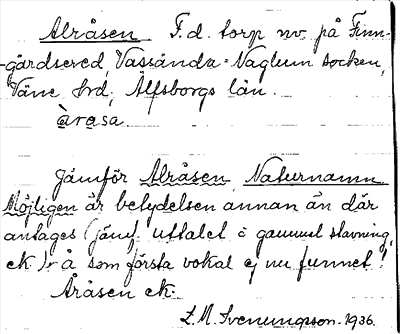 Alråsen F.d. torp nv. på Finn-
-gärdsered, Vassända-Naglum socken,
Väne hrd, Älfsborgs län.
àrasa.
Jämför Alråsen Naturnamn
Möjligen är betydelsen annan än där
antages (jämf. uttalet i gammal stavning
ek.) r å som första vokal ej nu funnet!
Åråsen ek.
L.M. Svenungsson. 1936.